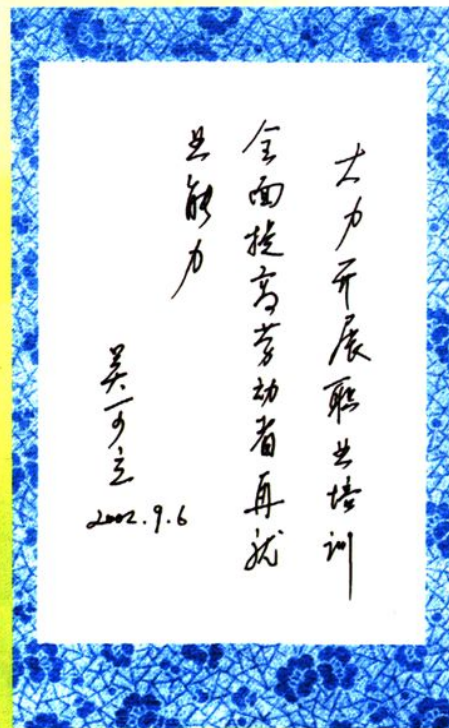 大力开展职业培训
全面提高劳动者再就
业能力
吴可立
2002.9.6